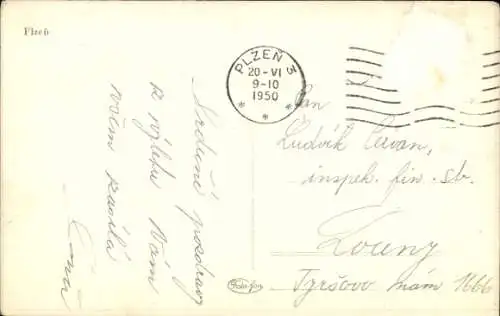 Plzeň
PLZEŇ 3
20-VI
9-10
1950
Srdečné pozdravy
z výletu Vám
všem zasílá
Pan
Ludvík Červan,
inspek. fin. sb.
Louny
Tyršovo nám 1666